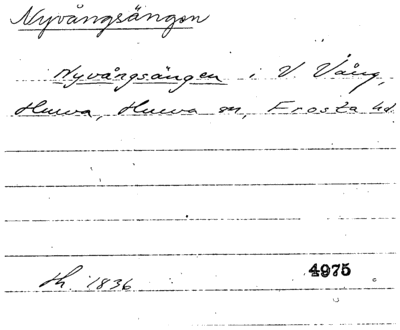 Nyvångsängen
Nyvångsängen i V. Vång,
Hurva, Hurva sn, Frosta hd
lh. 1836 4975